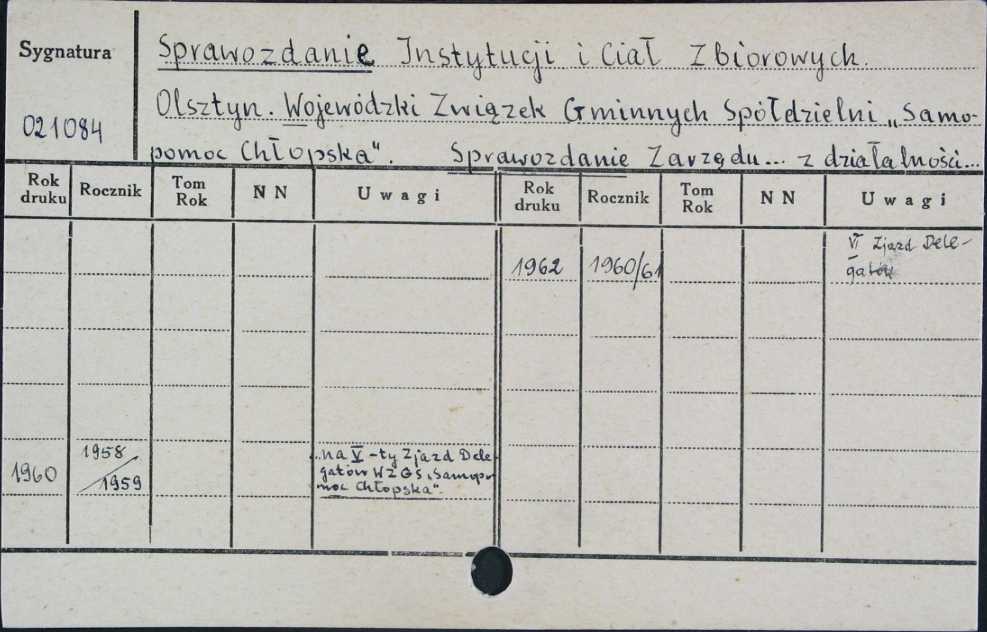 Sygnatura
021084
Sprawozdanie Instytucji i Ciał Zbiorowych.
Olsztyn. Wojewódzki Związek Gminnych Spółdzielni „Samo-
pomoc Chłopska". Sprawozdanie Zarządu... z działalności...
Rok druku Rocznik Tom Rok NN Uwagi Rok druku Rocznik Tom Rok NN Uwagi
1962 1960/61 VI Zjazd Dele-
gatów
1960 1958/1959 ...na V-ty Zjazd Dele-
gatów WZGS „Samopo-
moc Chłopska".